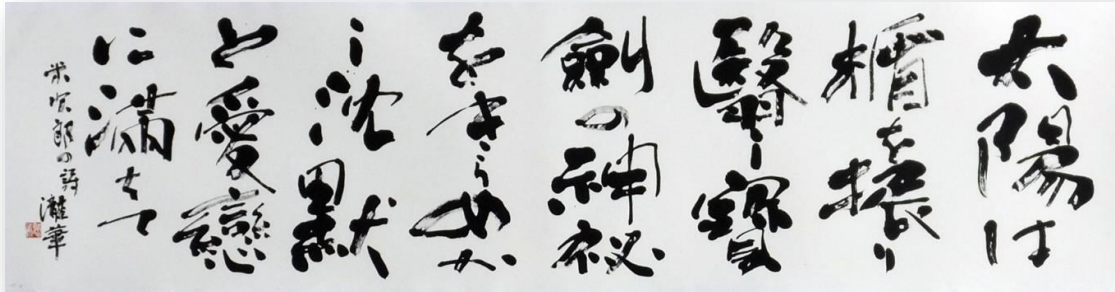 太陽は
楯を振り
翳し寶
劍の神祕
をきらめか
し沈默
と愛戀
に満ちて
米次郎の詩